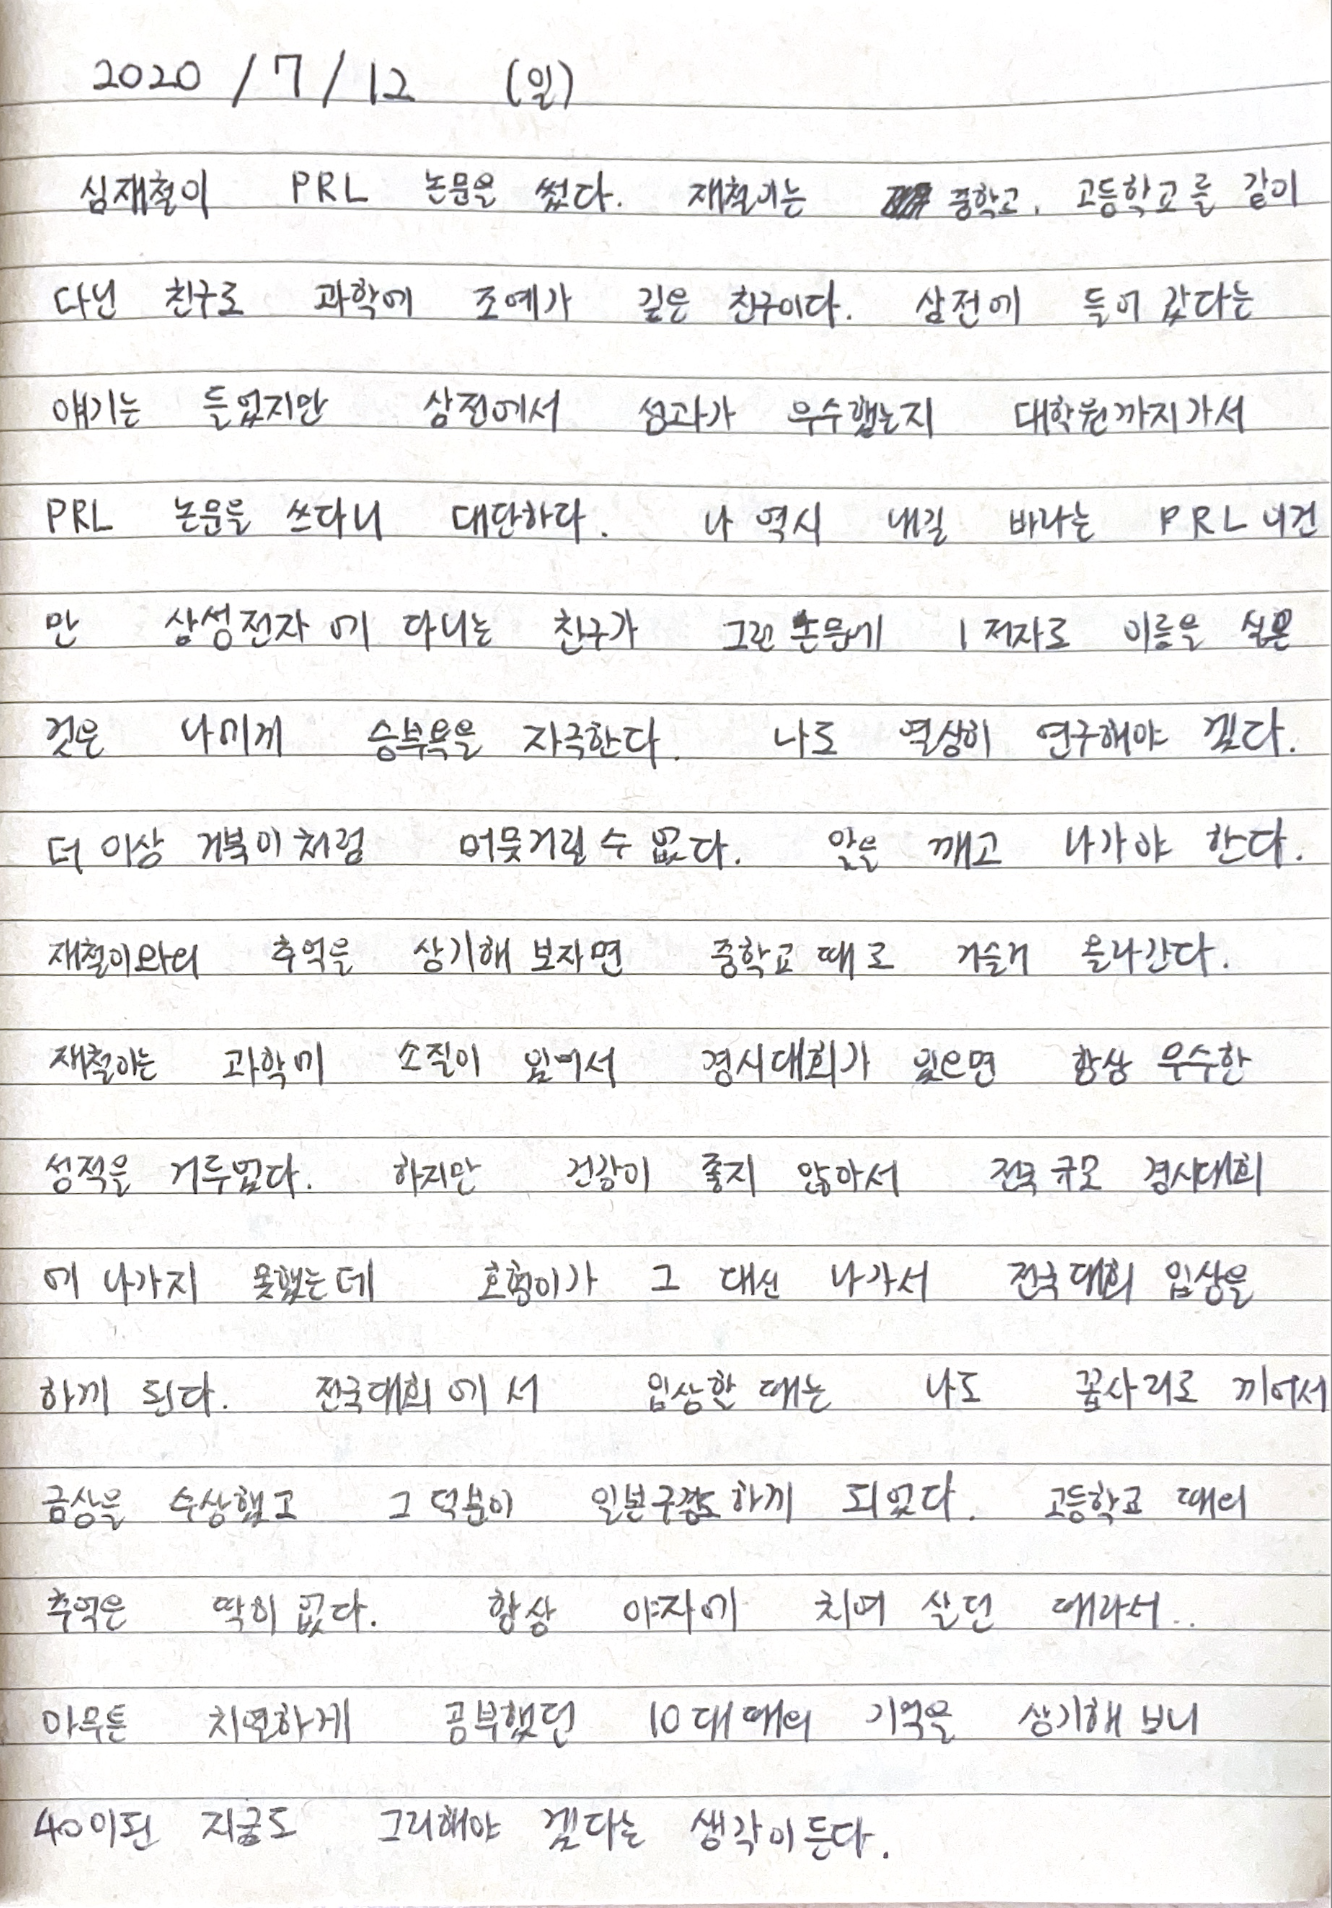 2020 / 7 / 12 (일)
심재철이 PRL 논문을 썼다. 재철이는 중학교, 고등학교를 같이
다닌 친구로 과학에 조예가 깊은 친구이다. 삼전에 들어 갔다는
얘기는 들었지만 삼전에서 성과가 우수했는지 대학원까지가서
PRL 논문을 쓰다니 대단하다. 나 역시 내길 바라는 PRL 이건
만 삼성전자에 다니는 친구가 그런 논문에 1저자로 이름을 실은
것은 나에게 승부욕을 자극한다. 나도 열심히 연구해야 겠다.
더 이상 거북이처럼 머뭇거릴 수 없다. 알을 깨고 나가야 한다.
재철이와의 추억을 상기해 보자면 중학교 때로 거슬러 올라간다.
재철이는 과학에 소질이 있어서 경시대회가 있으면 항상 우수한
성적을 거두었다. 하지만 건강이 좋지 않아서 전국 규모 경시대회
에 나가지 못했는데 호형이가 그 대신 나가서 전국대회 입상을
하게 된다. 전국대회에서 입상할 때는 나도 꼽사리로 끼어서
금상을 수상했고 그 덕분이 일본구경도 하게 되었다. 고등학교 때의
추억은 딱히 없다. 항상 야자에 치여 살던 때라서..
아무튼 치열하게 공부했던 10대 때의 기억을 상기해 보니
40이된 지금도 그리해야 겠다는 생각이 든다.